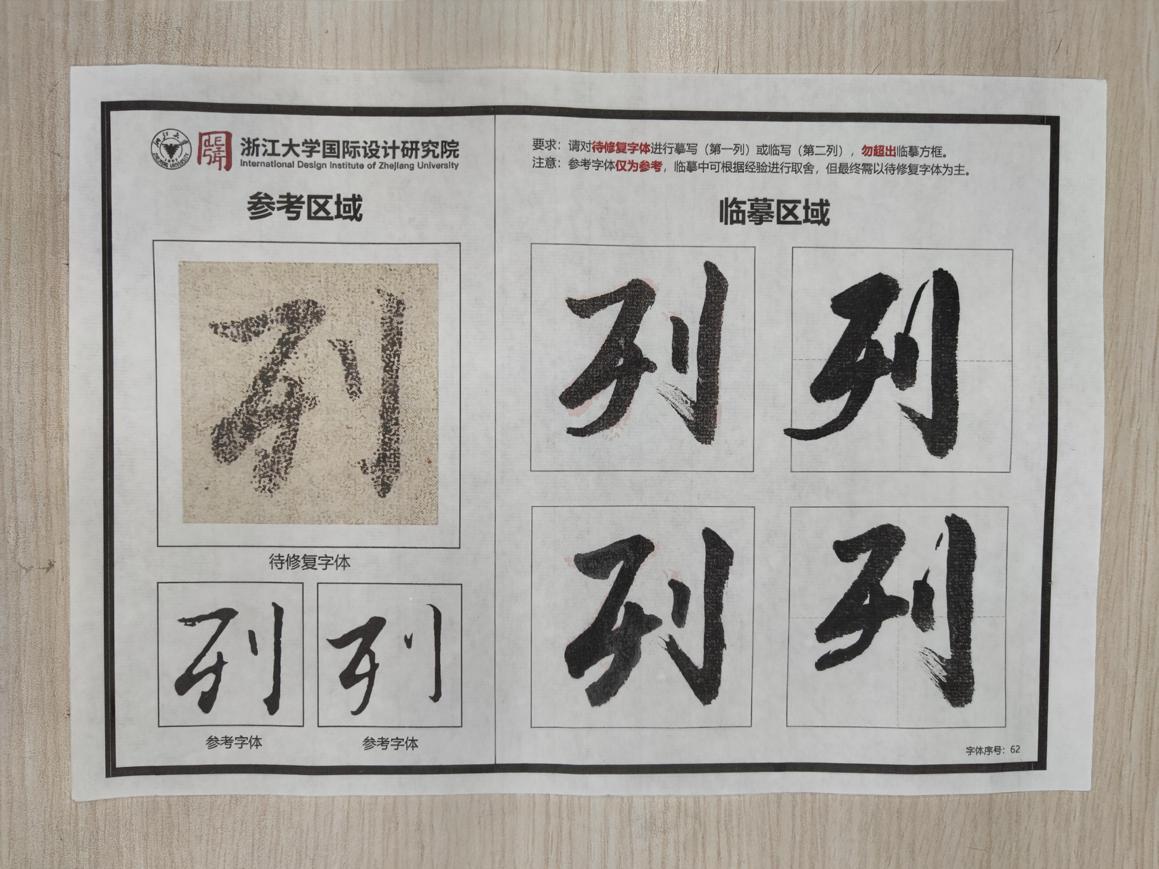 浙江大学国际设计研究院
International Design Institute of Zhejiang University
参考区域
列
待修复字体
列 列
参考字体 参考字体
要求：请对待修复字体进行摹写（第一列）或临写（第二列），勿超出临摹方框。
注意：参考字体仅为参考，临摹中可根据经验进行取舍，但最终需以待修复字体为主。
临摹区域
列 列
列 列
字体序号：62